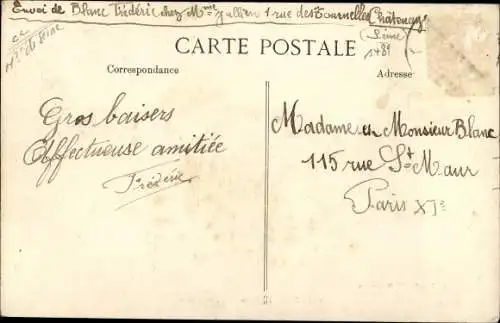 Envoi de Blanc Frédéric chez Mme Jullien 1 rue des Tournelles Châtenay
(Seine)
CARTE POSTALE
Correspondance
Adresse
Gros baisers
Effectueuse amitiée
Frédéric
Madame en Monsieur Blanc
115 rue St Maur
Paris XIe